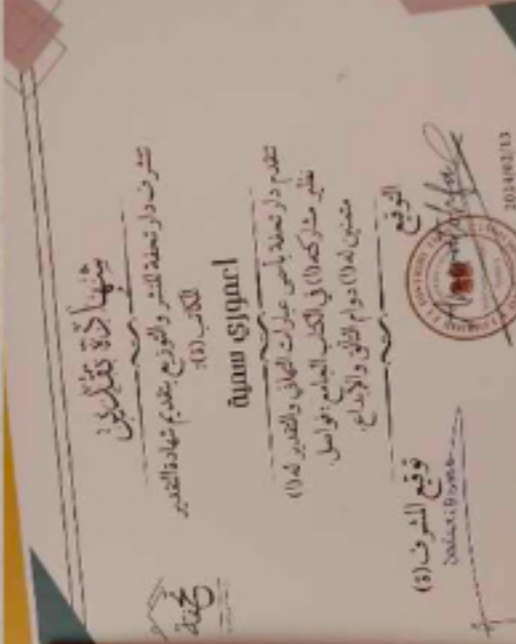 شهادة تقدير
تتشرف دار تحفة للنشر والتوزيع بتقديم شهادة التقدير
للكاتب (ة):
اعموري سمية
تتقدم دار تحفة بأسمى عبارات التهاني والتقدير له(ا)
نظير مشاركته(ا) في الكتاب الجامع: فواصل.
متمنين له(ا) دوام التألق والإبداع.
التوقيع
توقيع المشرف (ة)
تحفة